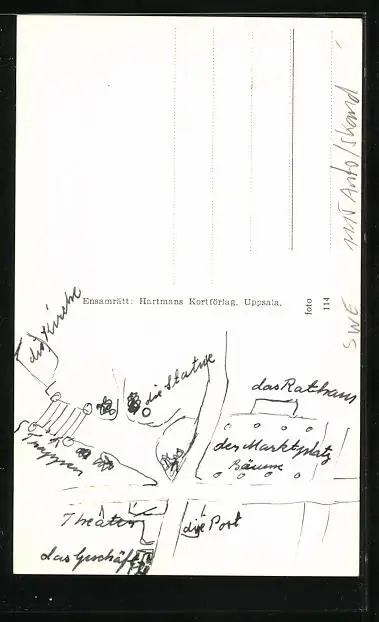 SWE mit Auto/Skand
Ensamrätt: Hartmans Kortförlag, Uppsala.
foto
114
die Kirche
die Statue
das Rathaus
der Marktplatz
Bäume
5 Treppen
Theater
die Post
das Geschäft